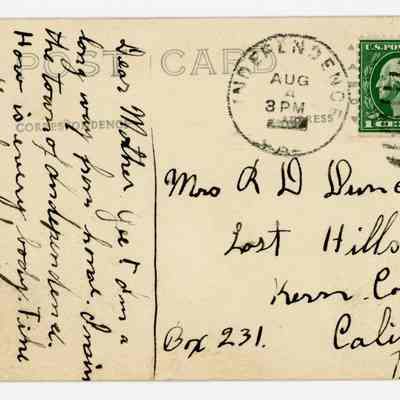 POST CARD
CORRESPONDENCE
ADDRESS
INDEPENDENCE
AUG
4
3 PM
U.S. POST
1 CE
Dear Mother. Yes I Im a
long way from home. I main
the town of Independence.
How is every body. Fine
Mrs R D Dun
Lost Hills
Kern. Co
Box 231. Cali